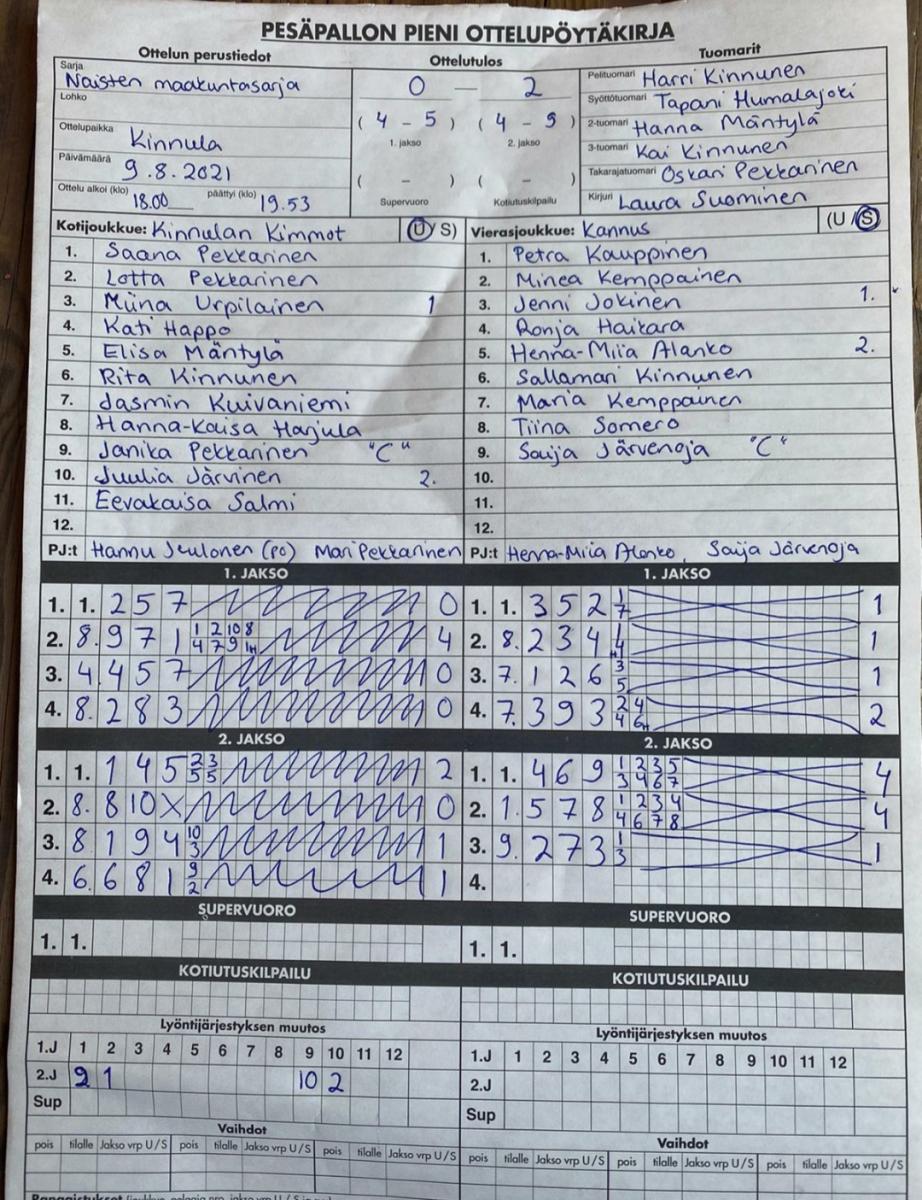 PESÄPALLON PIENI OTTELUPÖYTÄKIRJA
Ottelun perustiedot
Sarja
Naisten maakuntasarja
Lohko
Ottelupaikka
Kinnula
Päivämäärä
9.8.2021
Ottelu alkoi (klo) 18.00 päättyi (klo) 19.53
Ottelutulos
0 — 2
( 4 - 5 ) ( 4 - 9 )
1. jakso 2. jakso
( - ) ( - )
Supervuoro Kotiutuskilpailu
Tuomarit
Pelituomari Harri Kinnunen
Syöttötuomari Tapani Humalajoki
2-tuomari Hanna Mäntylä
3-tuomari Kai Kinnunen
Takarajatuomari Oskari Pekkarinen
Kirjuri Laura Suominen
Kotijoukkue: Kinnulan Kimmot (U/S)
1. Saana Pekkarinen
2. Lotta Pekkarinen
3. Miina Urpilainen 1
4. Kati Happo
5. Elisa Mäntylä
6. Rita Kinnunen
7. Jasmin Kuivaniemi
8. Hanna-Kaisa Harjula
9. Janika Pekkarinen "C"
10. Juulia Järvinen 2.
11. Eevakaisa Salmi
12.
PJ:t Hannu Leulonen (PO) Mari Pekkarinen
Vierasjoukkue: Kannus (U/S)
1. Petra Kauppinen
2. Minea Kemppainen
3. Jenni Jokinen 1.
4. Ronja Haikara
5. Henna-Miia Alanko 2.
6. Sallamari Kinnunen
7. Maria Kemppainen
8. Tiina Somero
9. Saija Järvenoja "C"
10.
11.
12.
PJ:t Henna-Miia Alanko, Saija Järvenoja
1. JAKSO
1. 1. 2 5 7 0
2. 8. 9 7 1 1 2 10 8 4
4 7 9 1H
3. 4 4 5 7 0
4. 8. 2 8 3 0
1. JAKSO
1. 1. 3 5 2 1 1
7
2. 8. 2 3 4 1 1
4
3. 7. 1 2 6 3 1
5
4. 7. 3 9 3 2 4 2
4 6H
2. JAKSO
1. 1. 1 4 5 2 3 2
5 5
2. 8. 8 10 X 0
3. 8 1 9 4 10 1
3
4. 6. 6 8 1 9 1
2
2. JAKSO
1. 1. 4 6 9 1 2 3 5 4
3 4 6 7
2. 1. 5 7 8 1 2 3 4 4
4 6 7 8
3. 9. 2 7 3 1 1
3
4.
SUPERVUORO
1. 1.
SUPERVUORO
1. 1.
KOTIUTUSKILPAILU
KOTIUTUSKILPAILU
Lyöntijärjestyksen muutos
1.J 1 2 3 4 5 6 7 8 9 10 11 12
2.J 9 1 10 2
Sup
Lyöntijärjestyksen muutos
1.J 1 2 3 4 5 6 7 8 9 10 11 12
2.J
Sup
Vaihdot
pois tilalle Jakso vrp U/S pois tilalle Jakso vrp U/S pois tilalle Jakso vrp U/S
Vaihdot
pois tilalle Jakso vrp U/S pois tilalle Jakso vrp U/S pois tilalle Jakso vrp U/S